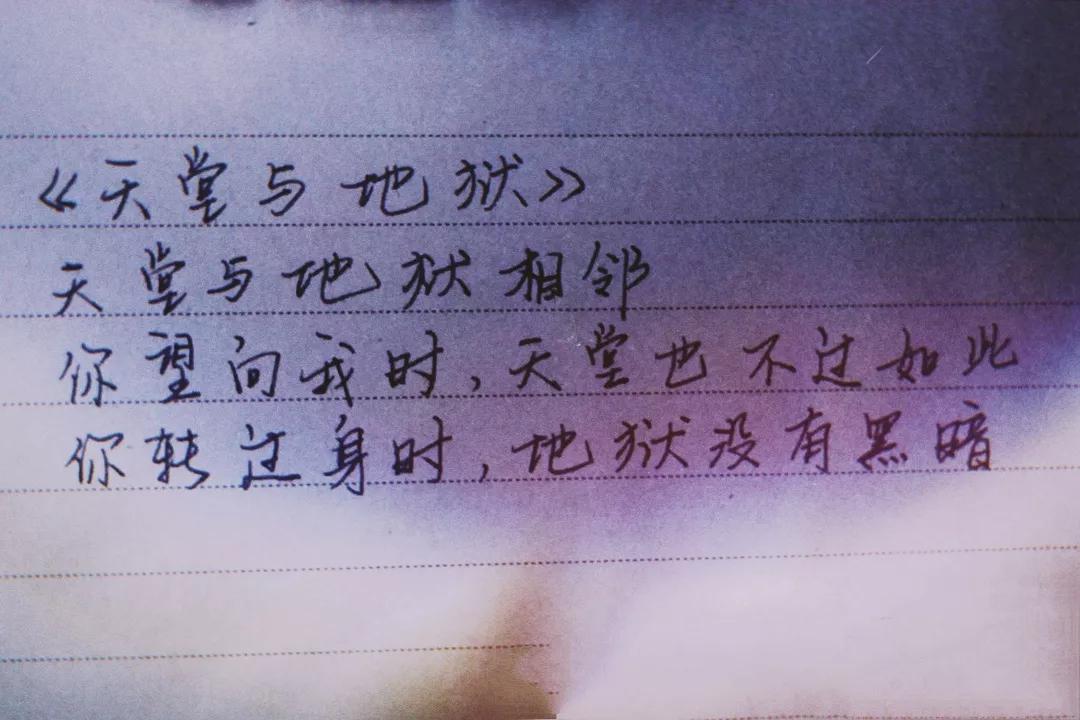 《天堂与地狱》
天堂与地狱相邻
你望向我时，天堂也不过如此
你转过身时，地狱没有黑暗